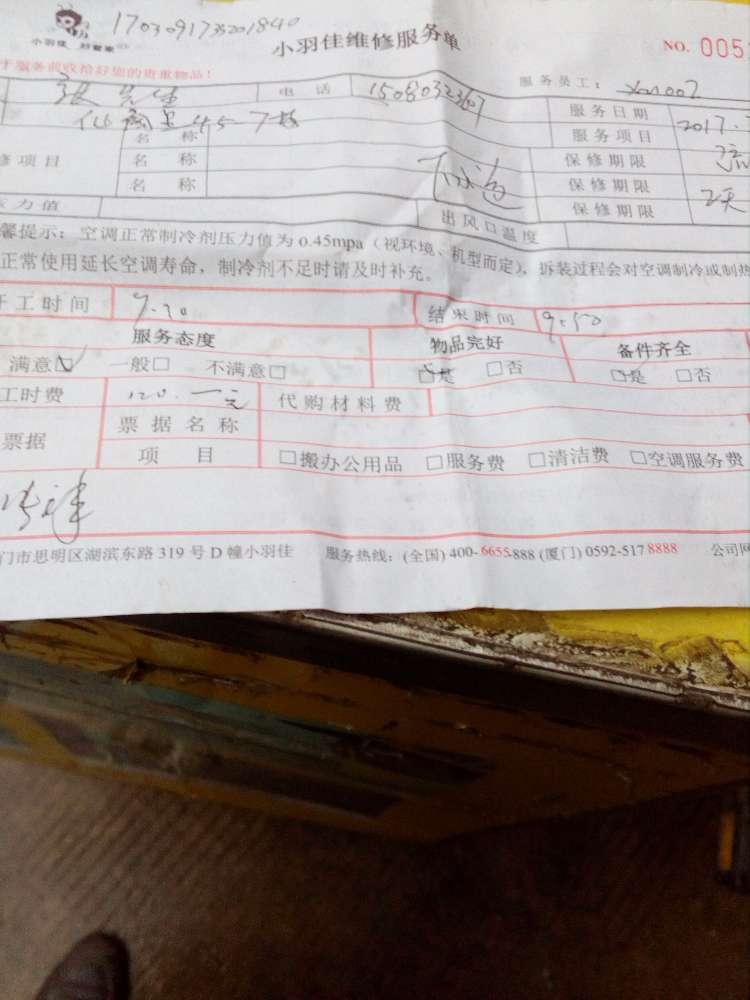 小羽佳 好管家
小羽佳维修服务单
NO. 005
服务前收拾好您的贵重物品!
服务员工: xm007
张先生 电话
服务日期 2017.
45-7
名 称
服务项目
修项目 名 称 保修期限
名 称 保修期限 2天
保修期限
压力值 出风口温度
馨提示: 空调正常制冷剂压力值为0.45mpa(视环境、机型而定), 拆装过程会对空调制冷或制热
正常使用延长空调寿命, 制冷剂不足时请及时补充。
开工时间 结果时间 9:50
服务态度 物品完好 备件齐全
满意☑ 一般□ 不满意□ ☑是 □否 ☑是 □否
工时费 120.一元 代购材料费
票据 票据名称
项 目 □搬办公用品 □服务费 □清洁费 □空调服务费
门市思明区湖滨东路 319 号 D 幢小羽佳 服务热线: (全国) 400-6655-888 (厦门) 0592-517 8888 公司网